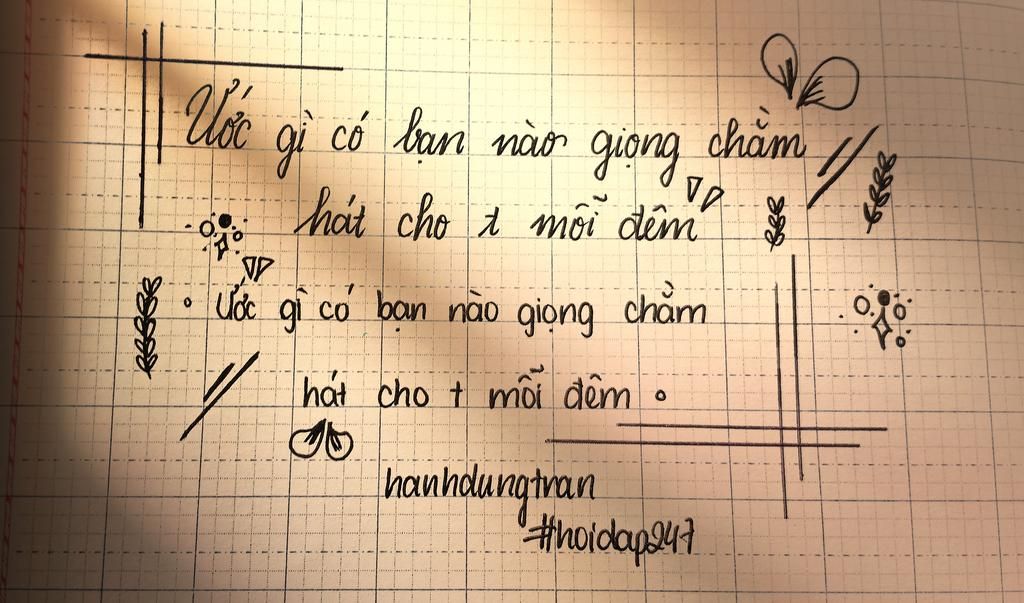 Ước gì có bạn nào giọng chằm
hát cho t mỗi đêm
Ước gì có bạn nào giọng chằm
hát cho t mỗi đêm
hanhdungtran
#hoidap247